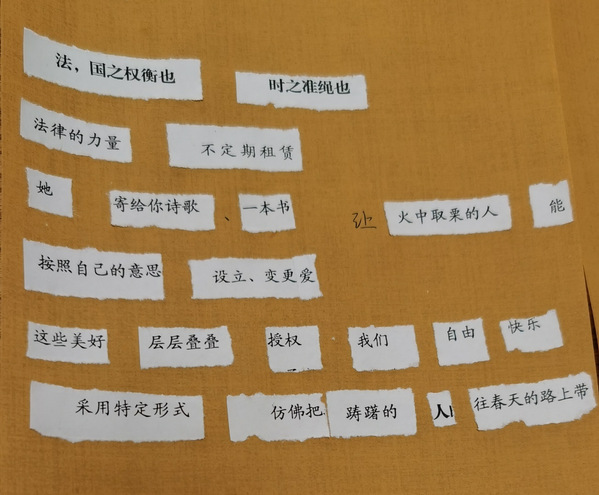 法，国之权衡也 时之准绳也
法律的力量 不定期租赁
她 寄给你诗歌、一本书 让 火中取栗的人 能
按照自己的意思 设立、变更爱
这些美好 层层叠叠 授权 我们 自由 快乐
采用特定形式 仿佛把 踌躇的 人 往春天的路上带